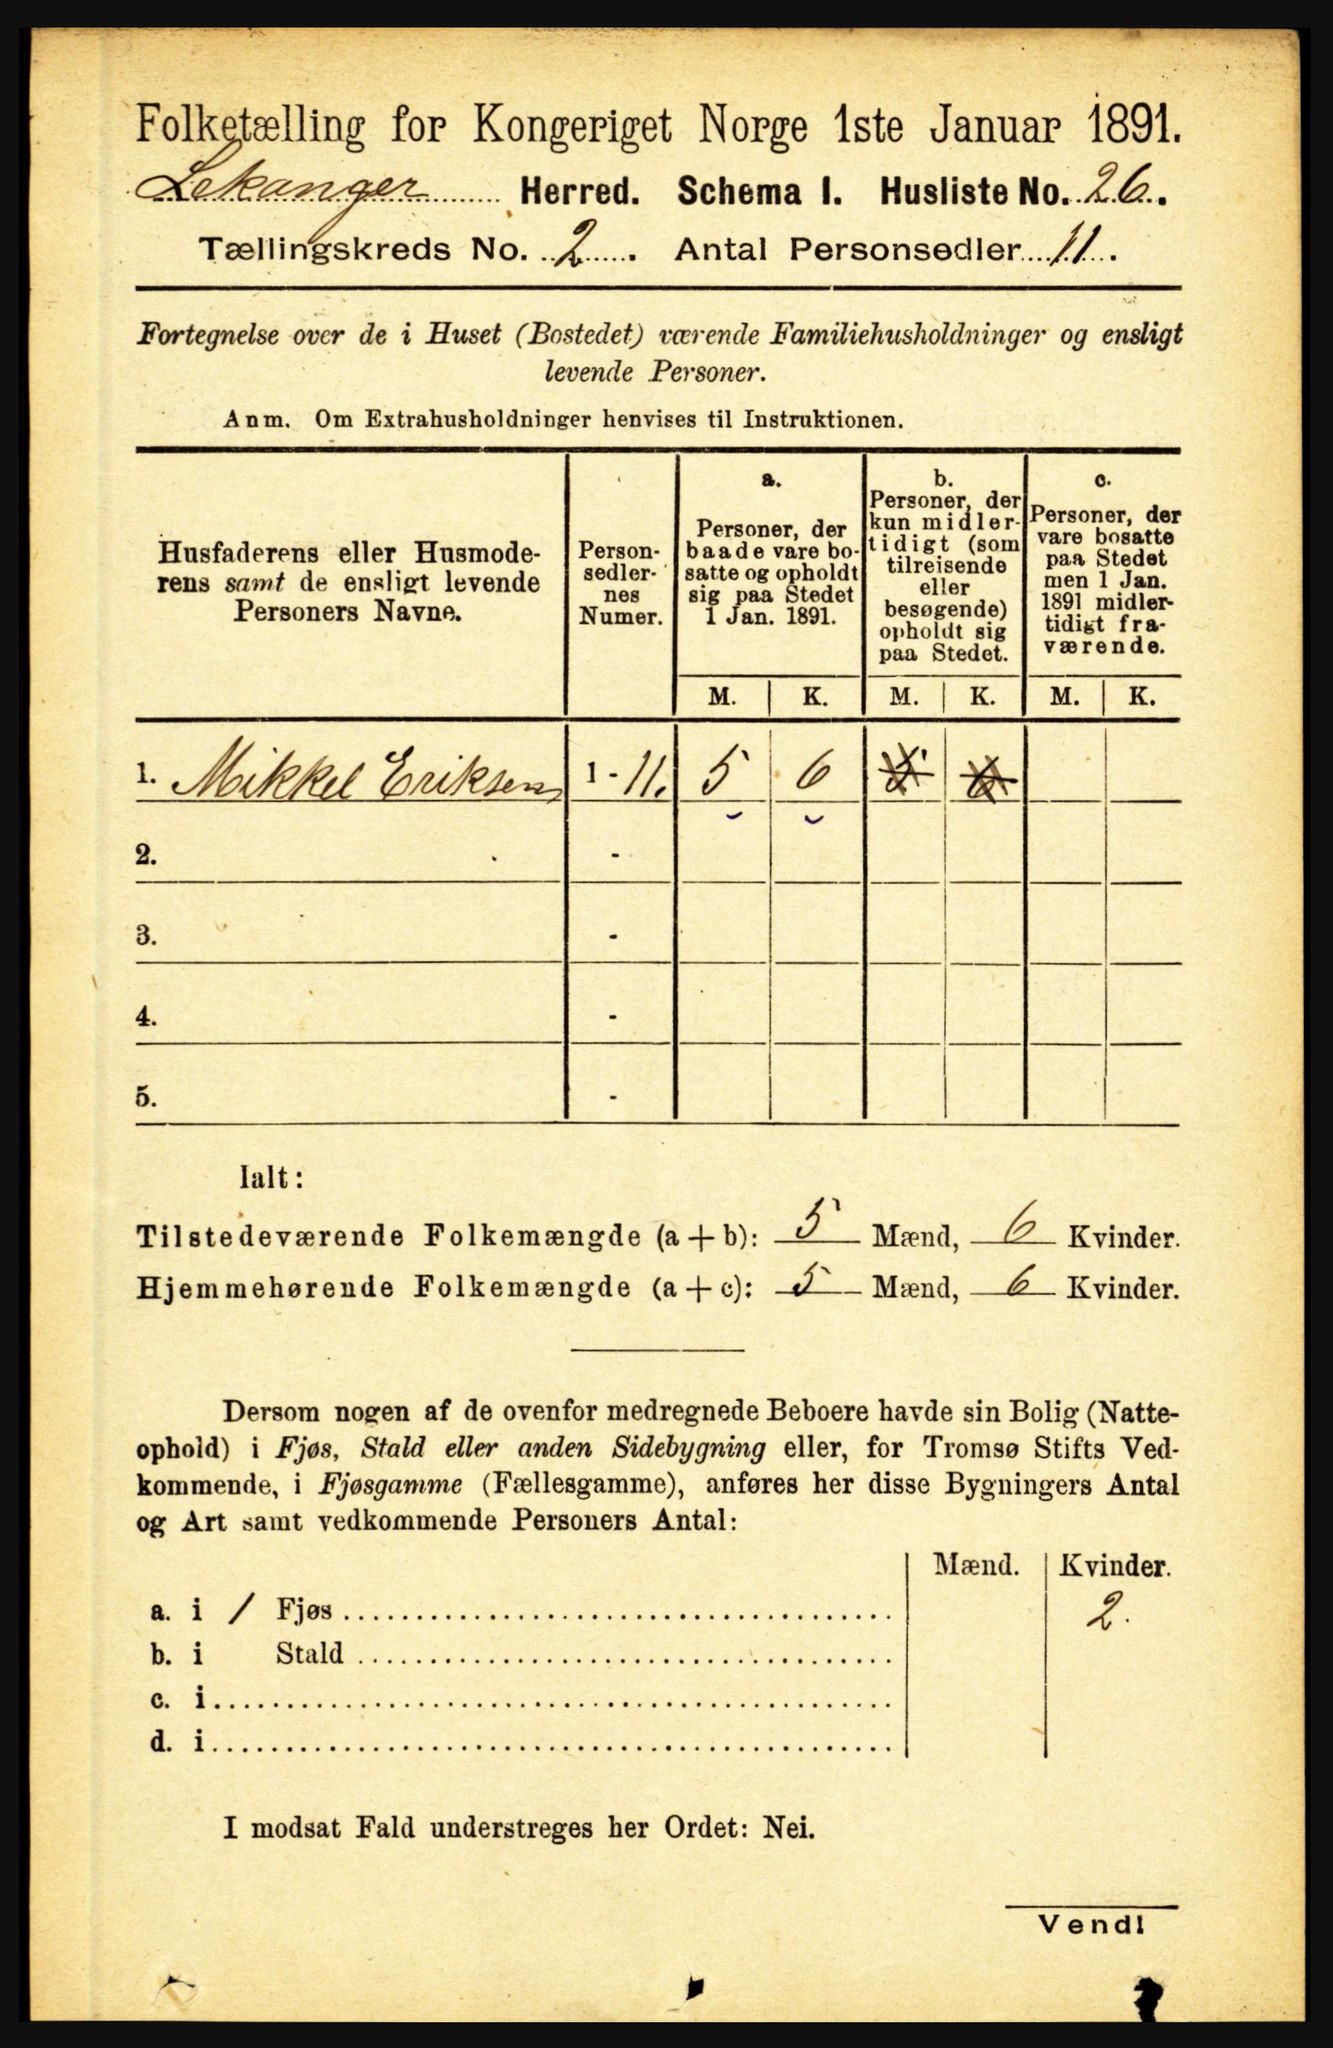 Folketælling for Kongeriget Norge 1ste Januar 1891.
Lekanger Herred. Schema I. Husliste No. 26.
Tællingskreds No. 2. Antal Personsedler 11.
Fortegnelse over de i Huset (Bostedet) værende Familiehusholdninger og ensligt
levende Personer.
Anm. Om Extrahusholdninger henvises til Instruktionen.
Husfaderens eller Husmode-
rens samt de ensligt levende
Personers Navne.
Person-
sedler-
nes
Numer.
a.
Personer, der
baade vare bo-
satte og opholdt
sig paa Stedet
1 Jan. 1891.
b.
Personer, der
kun midler-
tidigt (som
tilreisende
eller
besøgende)
opholdt sig
paa Stedet.
c.
Personer, der
vare bosatte
paa Stedet
men 1 Jan.
1891 midler-
tidigt fra-
værende.
M. K. M. K. M. K.
1. Mikkel Eriksen 1 - 11. 5 6 5 6
2. -
3. -
4. -
5. -
Ialt:
Tilstedeværende Folkemængde (a + b): 5 Mænd, 6 Kvinder.
Hjemmehørende Folkemængde (a + c): 5 Mænd, 6 Kvinder.
Dersom nogen af de ovenfor medregnede Beboere havde sin Bolig (Natte-
ophold) i Fjøs, Stald eller anden Sidebygning eller, for Tromsø Stifts Ved-
kommende, i Fjøsgamme (Fællesgamme), anføres her disse Bygningers Antal
og Art samt vedkommende Personers Antal:
Mænd. Kvinder.
a. i 1 Fjøs 2.
b. i Stald
c. i
d. i
I modsat Fald understreges her Ordet: Nei.
Vend!